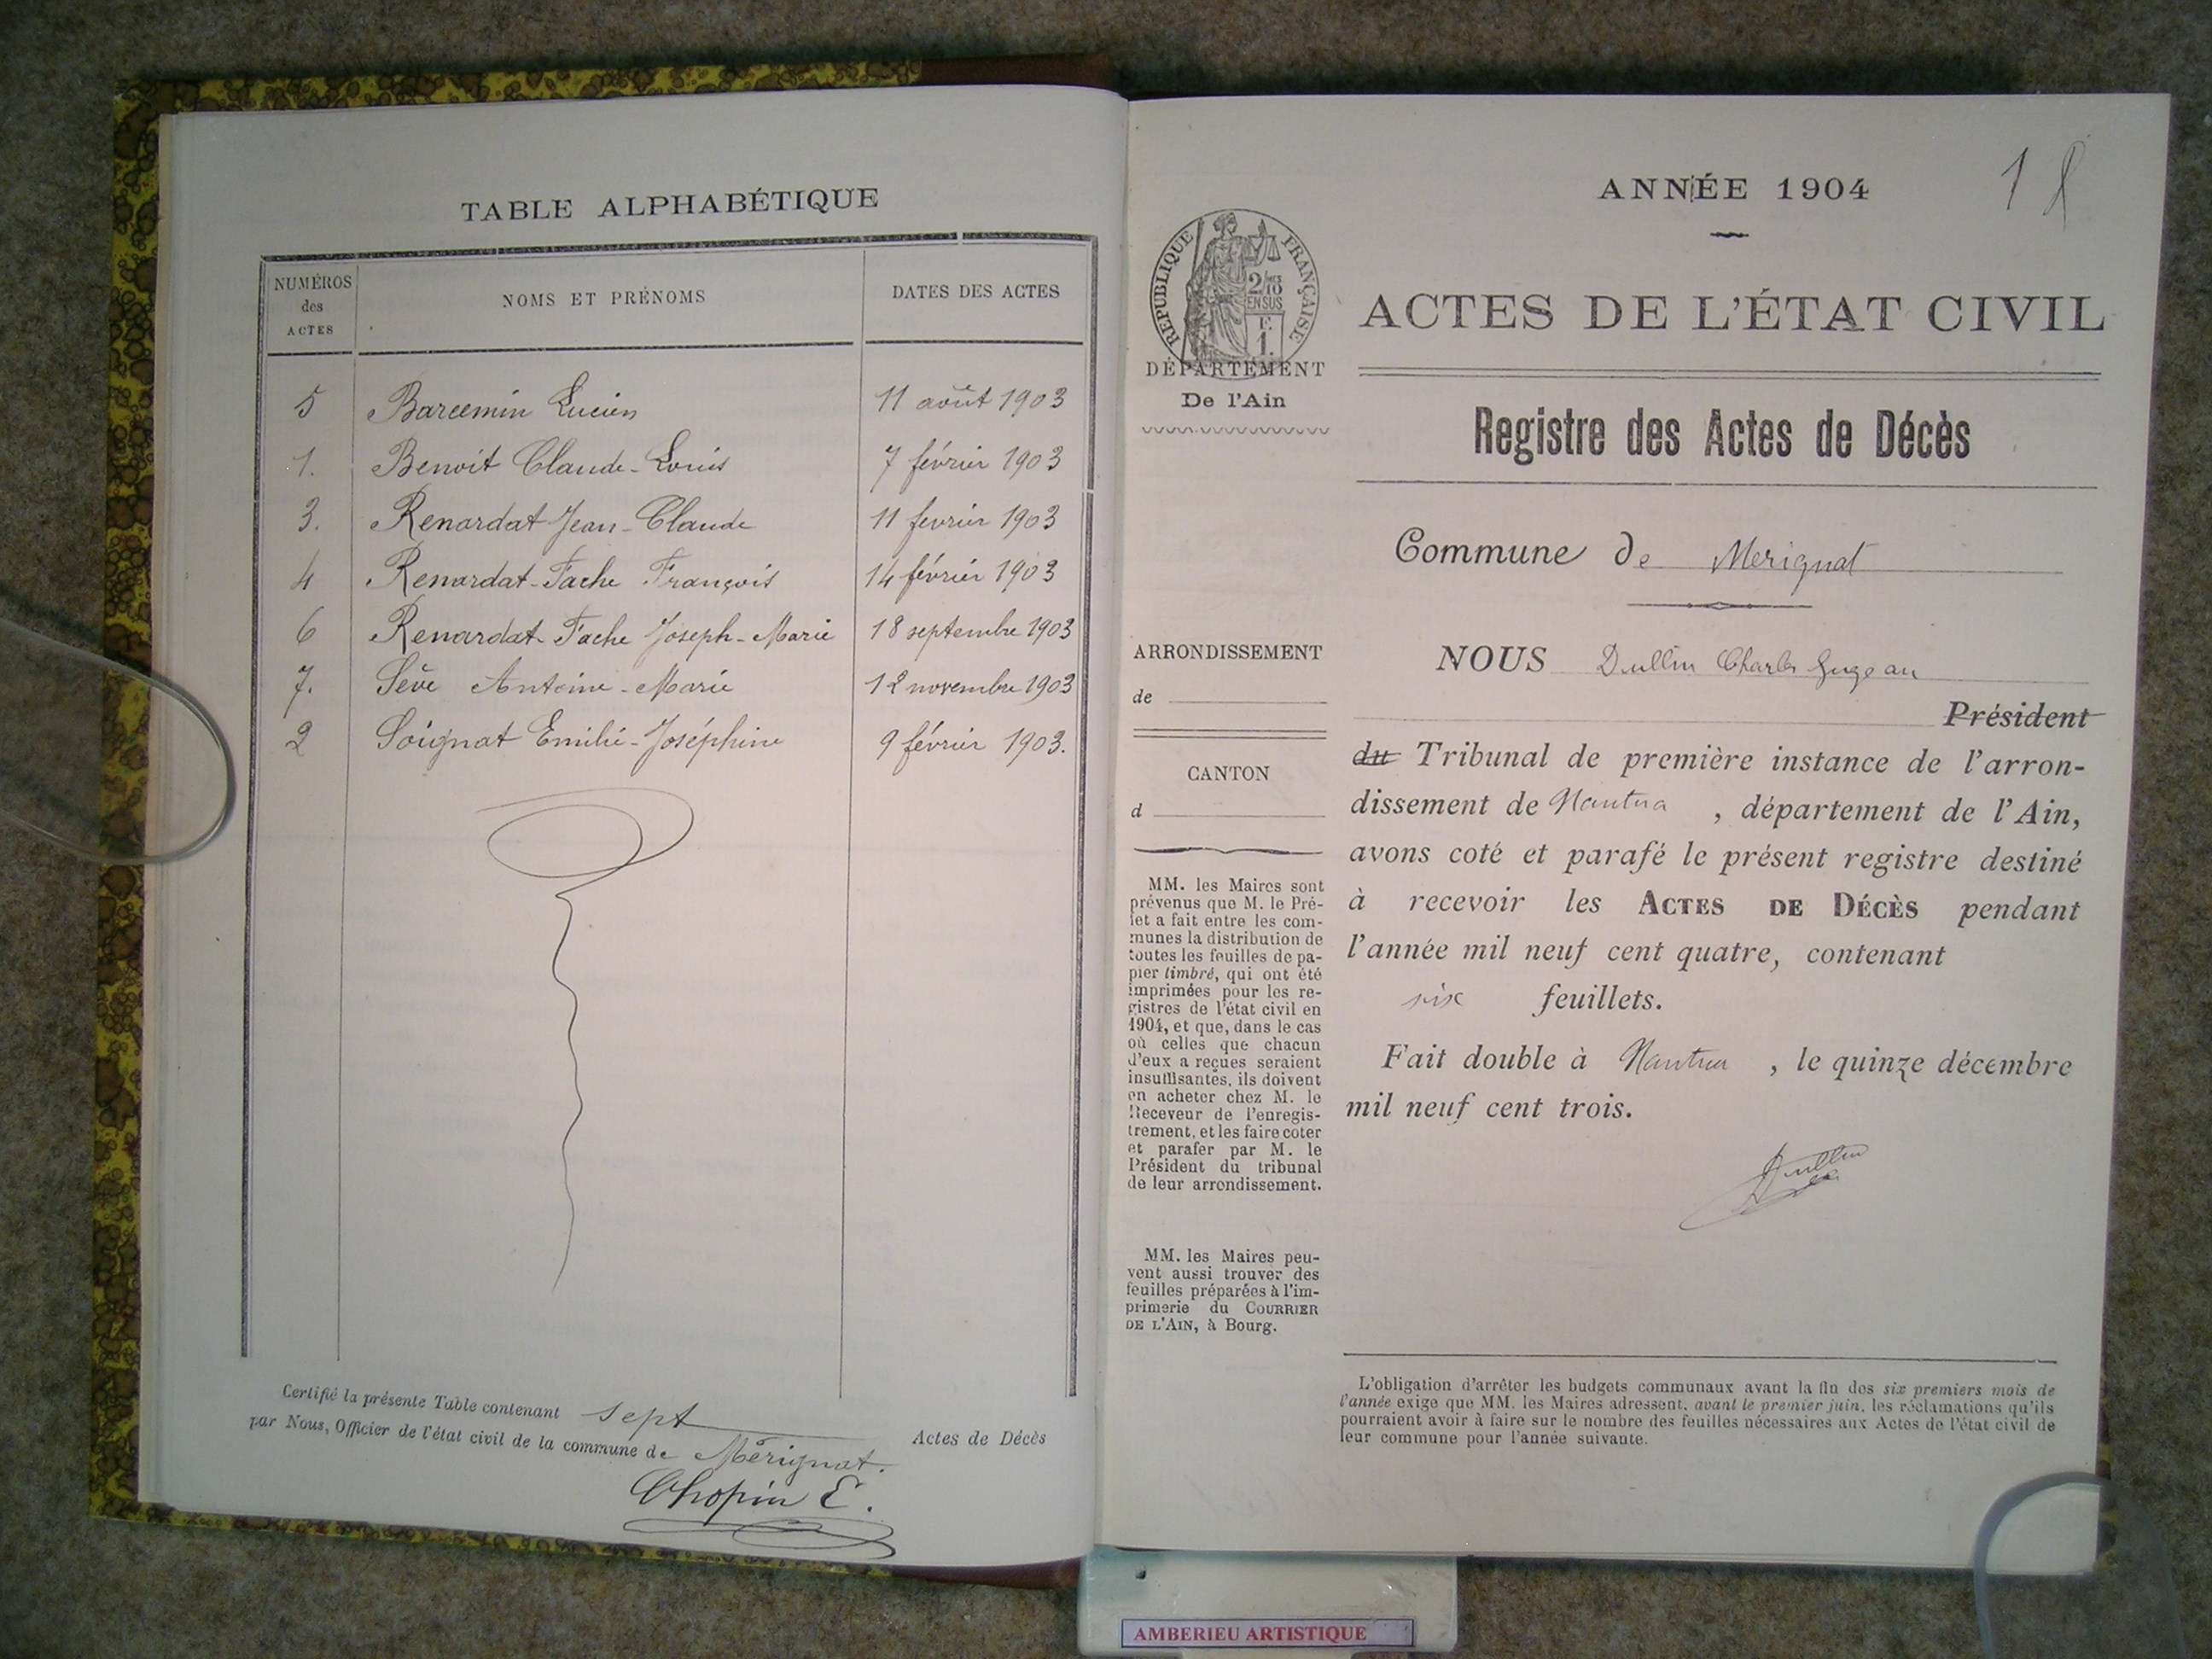 TABLE ALPHABÉTIQUE
NUMÉROS des ACTES
NOMS ET PRÉNOMS
DATES DES ACTES
5 Barcemin Lucien 11 août 1903
1. Benoit Claude-Louis 7 février 1903
3. Renardat Jean-Claude 11 fevrier 1903
4 Renardat-Tache François 14 février 1903
6 Renardat-Tache Joseph-Marie 18 septembre 1903
7. Sève Antoine-Marie 12 novembre 1903
2 Soignat Emilie-Joséphine 9 février 1903.
Certifié la présente Table contenant sept Actes de Décès
par Nous, Officier de l'état civil de la commune de Mérignat.
Chopin E.
1
ANNÉE 1904
RÉPUBLIQUE FRANÇAISE
2/10
EN SUS
F.
1.
ACTES DE L'ÉTAT CIVIL
DÉPARTEMENT
De l'Ain
Registre des Actes de Décès
Commune de Merignat
ARRONDISSEMENT
de
CANTON
d
MM. les Maires sont
prévenus que M. le Pré-
fet a fait entre les com-
munes la distribution de
toutes les feuilles de pa-
pier timbré, qui ont été
imprimées pour les re-
gistres de l'état civil en
1904, et que, dans le cas
où celles que chacun
d'eux a reçues seraient
insuffisantes, ils doivent
en acheter chez M. le
Receveur de l'enregis-
trement, et les faire coter
et parafer par M. le
Président du tribunal
de leur arrondissement.
MM. les Maires peu-
vent aussi trouver des
feuilles préparées à l'im-
primerie du COURRIER
DE L'AIN, à Bourg.
NOUS Dullin Charles
Président
du Tribunal de première instance de l'arron-
dissement de Nantua, département de l'Ain,
avons coté et parafé le présent registre destiné
à recevoir les ACTES DE DÉCÈS pendant
l'année mil neuf cent quatre, contenant
six feuillets.
Fait double à Nantua, le quinze décembre
mil neuf cent trois.
Dullin
L'obligation d'arrêter les budgets communaux avant la fin des six premiers mois de
l'année exige que MM. les Maires adressent, avant le premier juin, les réclamations qu'ils
pourraient avoir à faire sur le nombre des feuilles nécessaires aux Actes de l'état civil de
leur commune pour l'année suivante.
AMBERIEU ARTISTIQUE